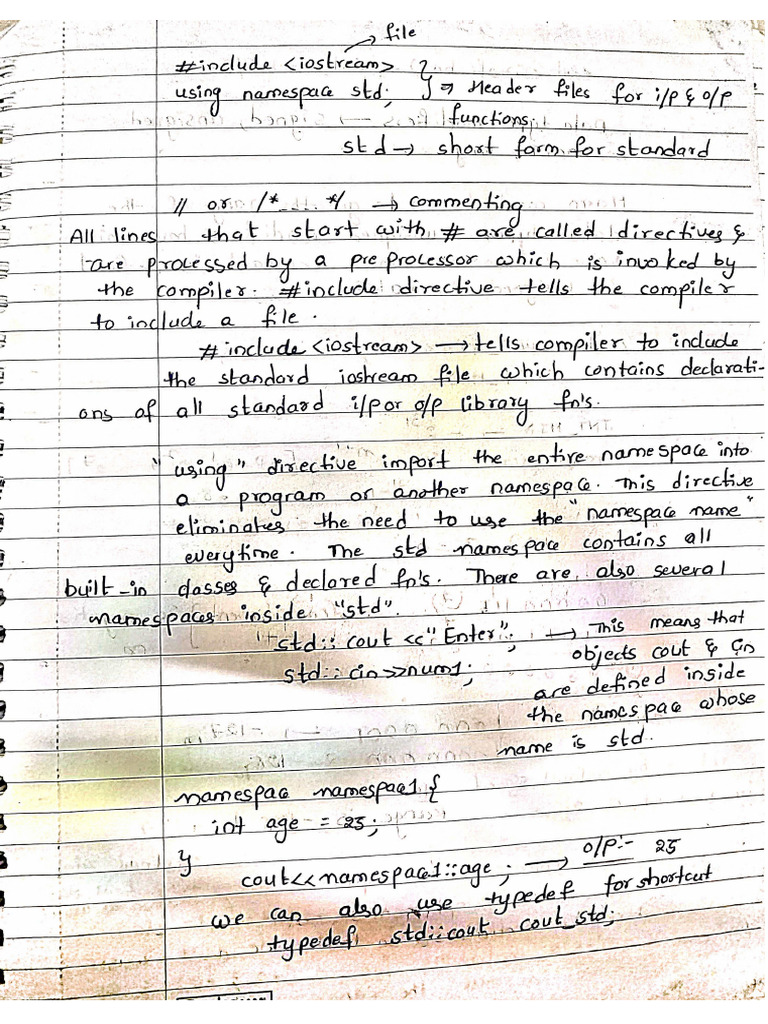 → file
#include <iostream> }
using namespace std; } ⇒ Header files for i/p & o/p
functions.
std → short form for standard
// or /* ... */ → commenting
All lines that start with # are called directives &
are processed by a preprocessor which is invoked by
the compiler. #include directive tells the compiler
to include a file.
#include <iostream> → tells compiler to include
the standard iostream file which contains declarati-
ons of all standard i/p or o/p library fn's.
"using" directive import the entire namespace into
a program or another namespace. This directive
eliminates the need to use the "namespace name"
everytime. The std namespace contains all
built-in classes & declared fn's. There are also several
namespaces inside "std".
std::cout <<"Enter"; → This means that
objects cout & cin
std::cin>>num1;
are defined inside
the namespace whose
name is std.
namespace namespace1 {
int age = 25;
}
cout<<namespace1::age; → o/p:- 25
we can also use typedef for shortcut
typedef std::cout cout_std;